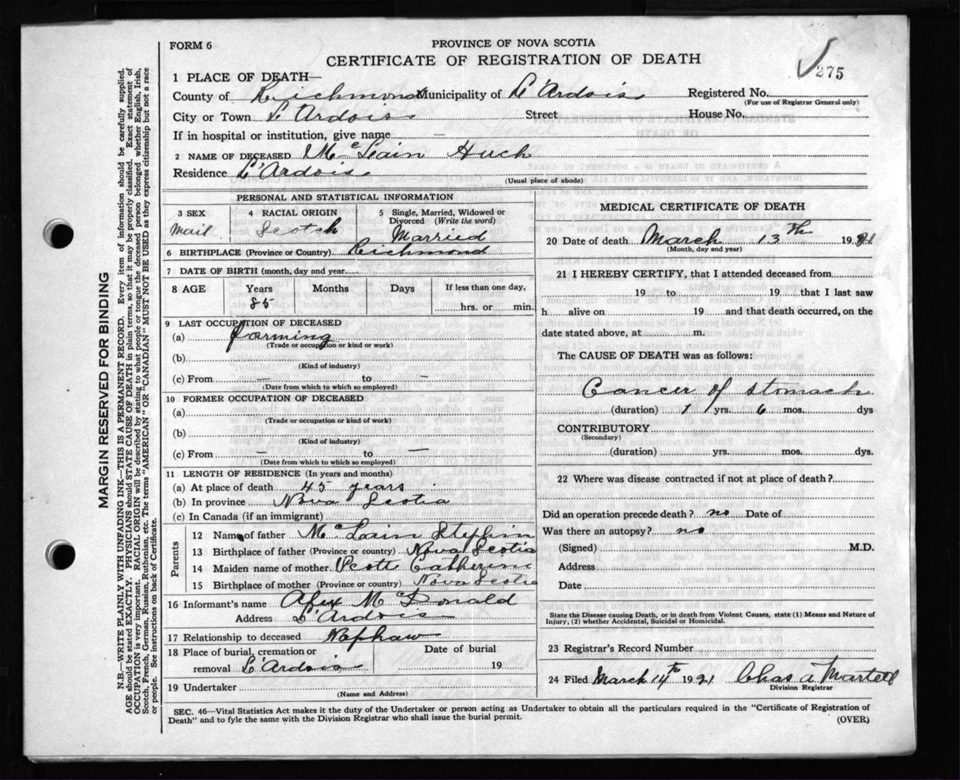 FORM 6
PROVINCE OF NOVA SCOTIA
CERTIFICATE OF REGISTRATION OF DEATH
275
1 PLACE OF DEATH—
County of Richmond Municipality of L'Ardois Registered No.
(For use of Registrar General only)
City or Town L'Ardois Street House No.
If in hospital or institution, give name —
2 NAME OF DECEASED McLain Huch
Residence L'Ardois
(Usual place of abode)
PERSONAL AND STATISTICAL INFORMATION
3 SEX 4 RACIAL ORIGIN 5 Single, Married, Widowed or Divorced (Write the word)
Mail Scotch Married
6 BIRTHPLACE (Province or Country) Richmond
7 DATE OF BIRTH (month, day and year)
8 AGE Years Months Days If less than one day,
85 hrs. or min.
9 LAST OCCUPATION OF DECEASED
(a) Farming
(Trade or occupation or kind of work)
(b)
(Kind of industry)
(c) From — to —
(Date from which to which so employed)
10 FORMER OCCUPATION OF DECEASED
(a)
(Trade or occupation or kind of work)
(b)
(Kind of industry)
(c) From — to —
(Date from which to which so employed)
11 LENGTH OF RESIDENCE (In years and months)
(a) At place of death 45 years
(b) In province Nova Scotia
(c) In Canada (if an immigrant)
Parents
12 Name of father McLain Stephin
13 Birthplace of father (Province or country) Nova Scotia
14 Maiden name of mother Scott Catherine
15 Birthplace of mother (Province or country) Nova Scotia
16 Informant's name Alex McDonald
Address L'Ardois
17 Relationship to deceased Naphaw
18 Place of burial, cremation or removal L'Ardois Date of burial 19
19 Undertaker
(Name and Address)
MEDICAL CERTIFICATE OF DEATH
20 Date of death March 13th 1921
(Month, day and year)
21 I HEREBY CERTIFY, that I attended deceased from
19 to 19 that I last saw
h alive on 19 and that death occurred, on the
date stated above, at m.
The CAUSE OF DEATH was as follows:
Cancer of stomach
(duration) 1 yrs. 6 mos. dys
CONTRIBUTORY
(Secondary)
(duration) yrs. mos. dys.
22 Where was disease contracted if not at place of death?
Did an operation precede death? no Date of
Was there an autopsy? no
(Signed) M.D.
Address
Date
State the Disease causing Death, or in death from Violent Causes, state (1) Means and Nature of Injury, (2) whether Accidental, Suicidal or Homicidal.
23 Registrar's Record Number
24 Filed March 14th 1921 Chas A Martell
Division Registrar
SEC. 46—Vital Statistics Act makes it the duty of the Undertaker or person acting as Undertaker to obtain all the particulars required in the "Certificate of Registration of
Death" and to fyle the same with the Division Registrar who shall issue the burial permit.
(OVER)
MARGIN RESERVED FOR BINDING
N.B.—WRITE PLAINLY WITH UNFADING INK—THIS IS A PERMANENT RECORD. Every item of information should be carefully supplied.
AGE should be stated EXACTLY. PHYSICIANS should STATE CAUSE OF DEATH in plain terms, so that it may be properly classified. Exact statement of
OCCUPATION is very important. RACIAL ORIGIN will be described by stating to what people or tongue the deceased person belonged whether English, Irish,
Scotch, French, German, Russian, Ruthenian, etc. The terms "AMERICAN" OR "CANADIAN" MUST NOT BE USED as they express citizenship but not a race
or people. See instructions on back of Certificate.